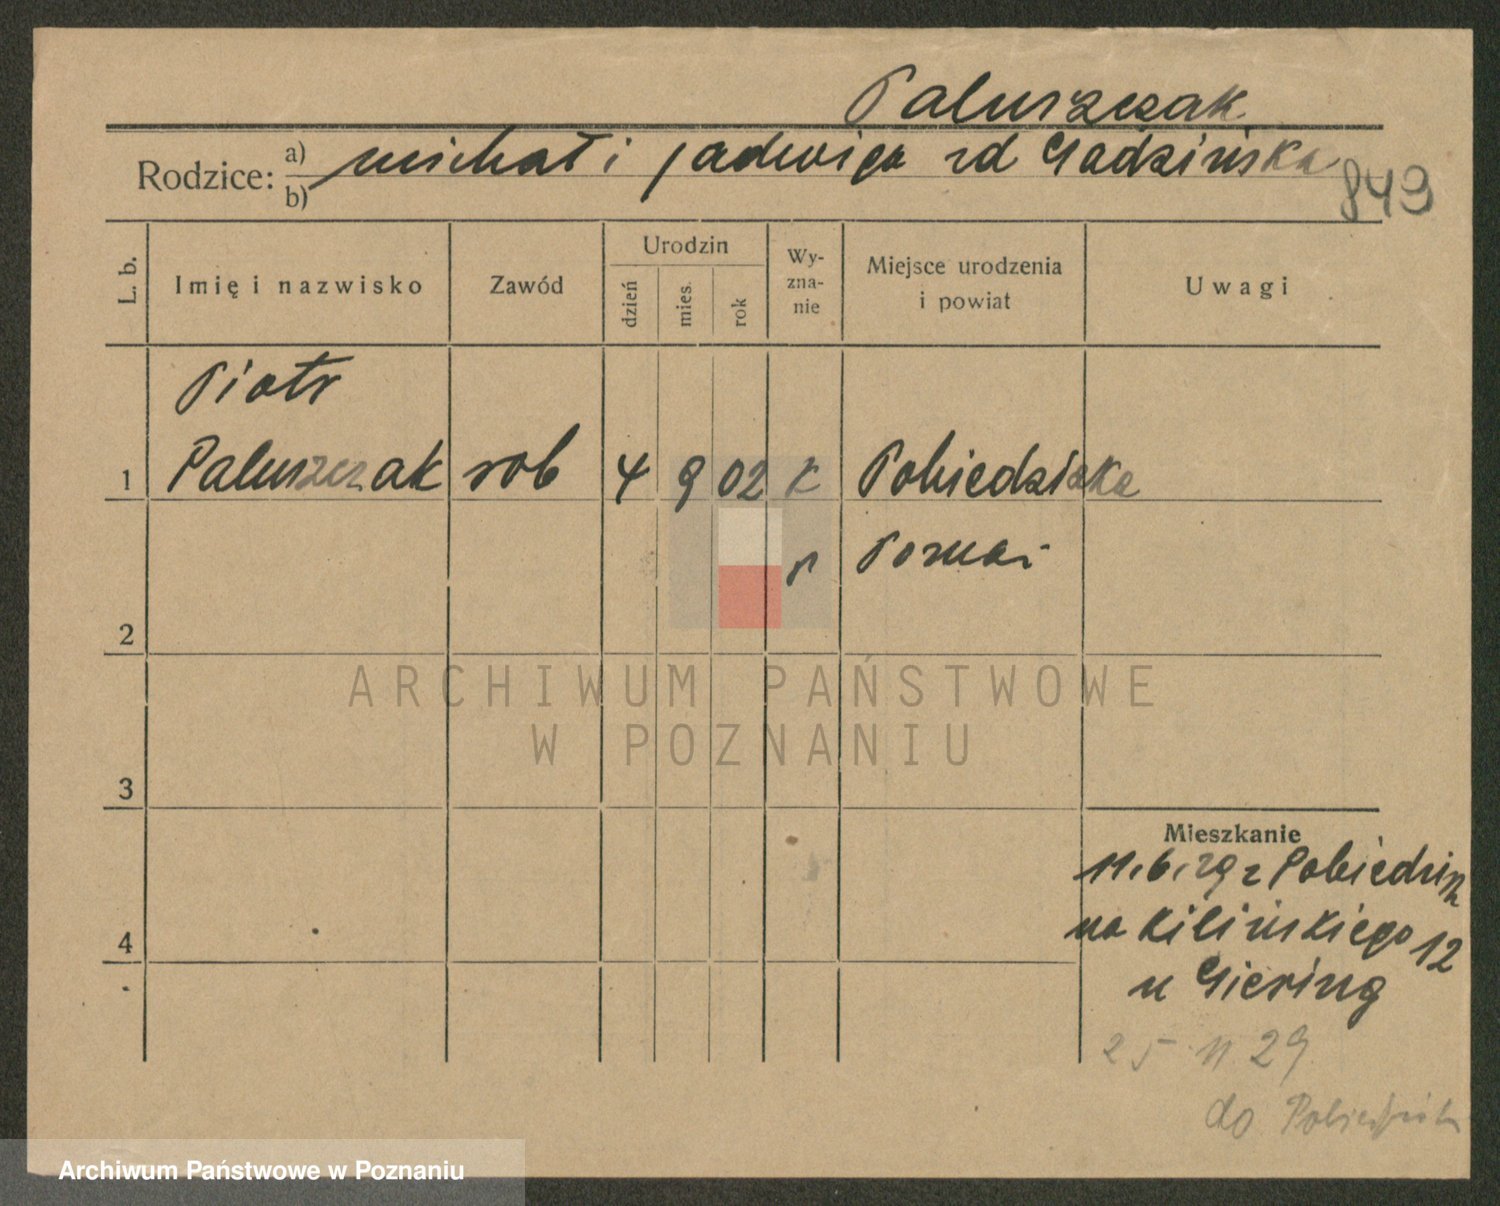 Paluszczak
Rodzice: a) b) Michał i Jadwiga zd Gadzińska
849
L. b. Imię i nazwisko Zawód Urodzin dzień mies. rok Wy-zna-nie Miejsce urodzenia i powiat Uwagi
Piotr
1 Paluszczak rob 4 9 02 k Pobiedziska
p Poznań
2
ARCHIWUM PAŃSTWOWE
W POZNANIU
3
Mieszkanie
11.6.29 z Pobiedzisk
4 na Kilińskiego 12
u Giering
25 11 29
do Pobiedzisk
Archiwum Państwowe w Poznaniu